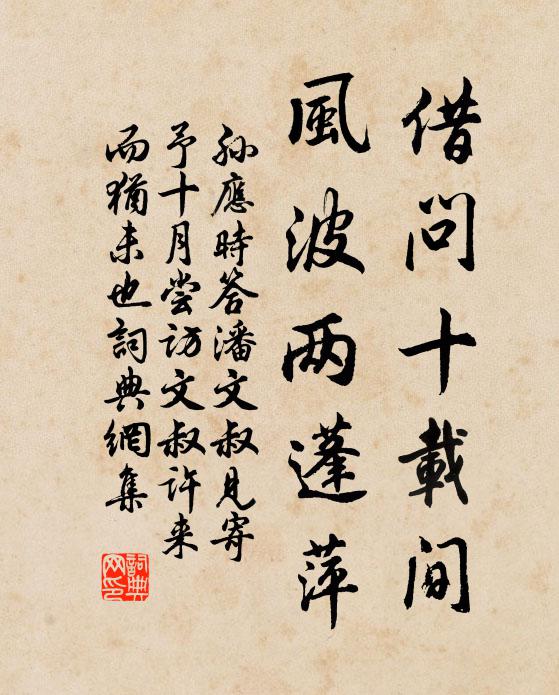 借問十載間
風波两蓬萍
孫應時答潘文叔見寄
予十月嘗訪文叔許来
而猶未也詞典網集
詞典
网印